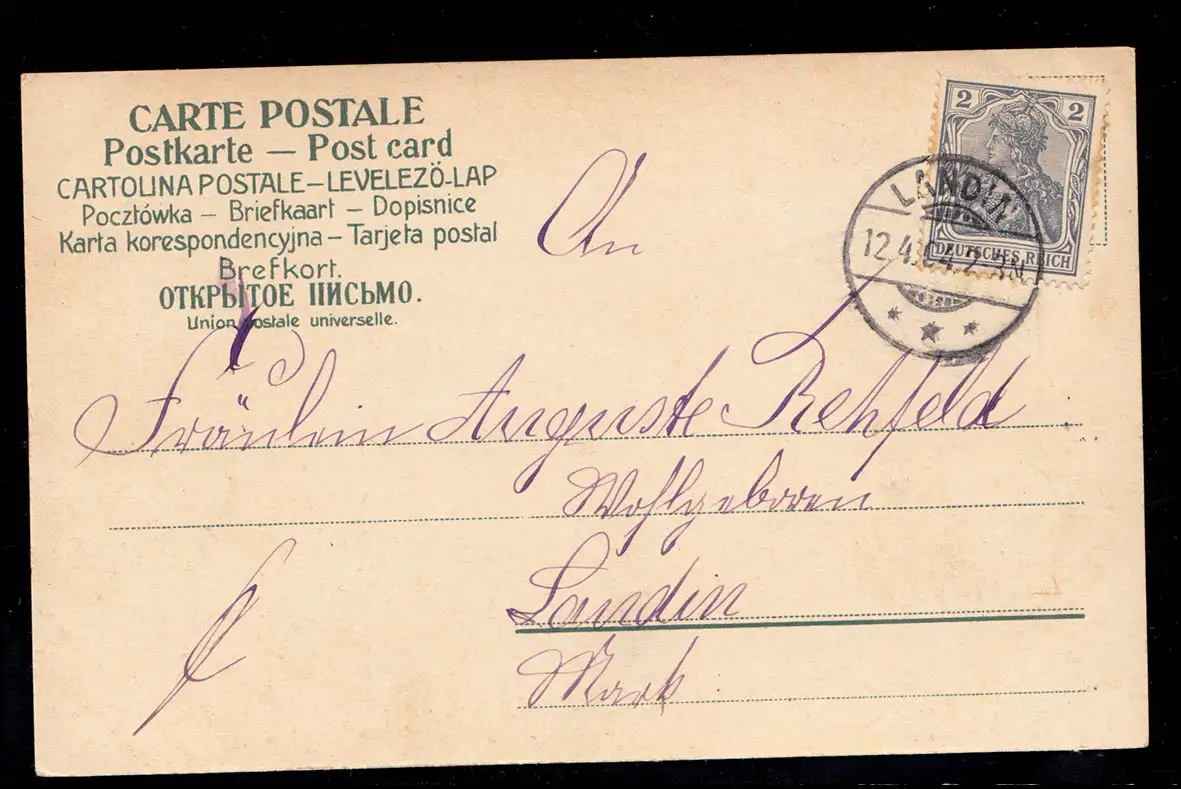 CARTE POSTALE
Postkarte — Post card
CARTOLINA POSTALE – LEVELEZŐ-LAP
Pocztówka – Briefkaart – Dopisnice
Karta korespondencyjna – Tarjeta postal
Brefkort.
ОТКРЫТОЕ ПИСЬМО.
Union postale universelle.
2 2
DEUTSCHES REICH
LANDIN
12.4.04. 2-3N
An
Fräulein Auguste Rehfeld
Wohlgeboren
Landin
Mark